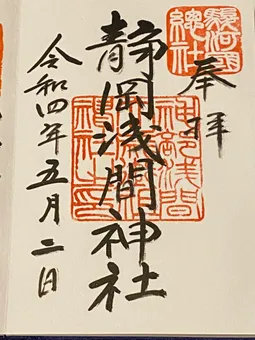 駿河國
總社
奉拝
静岡浅間神社
神部浅間
令和四年五月二日